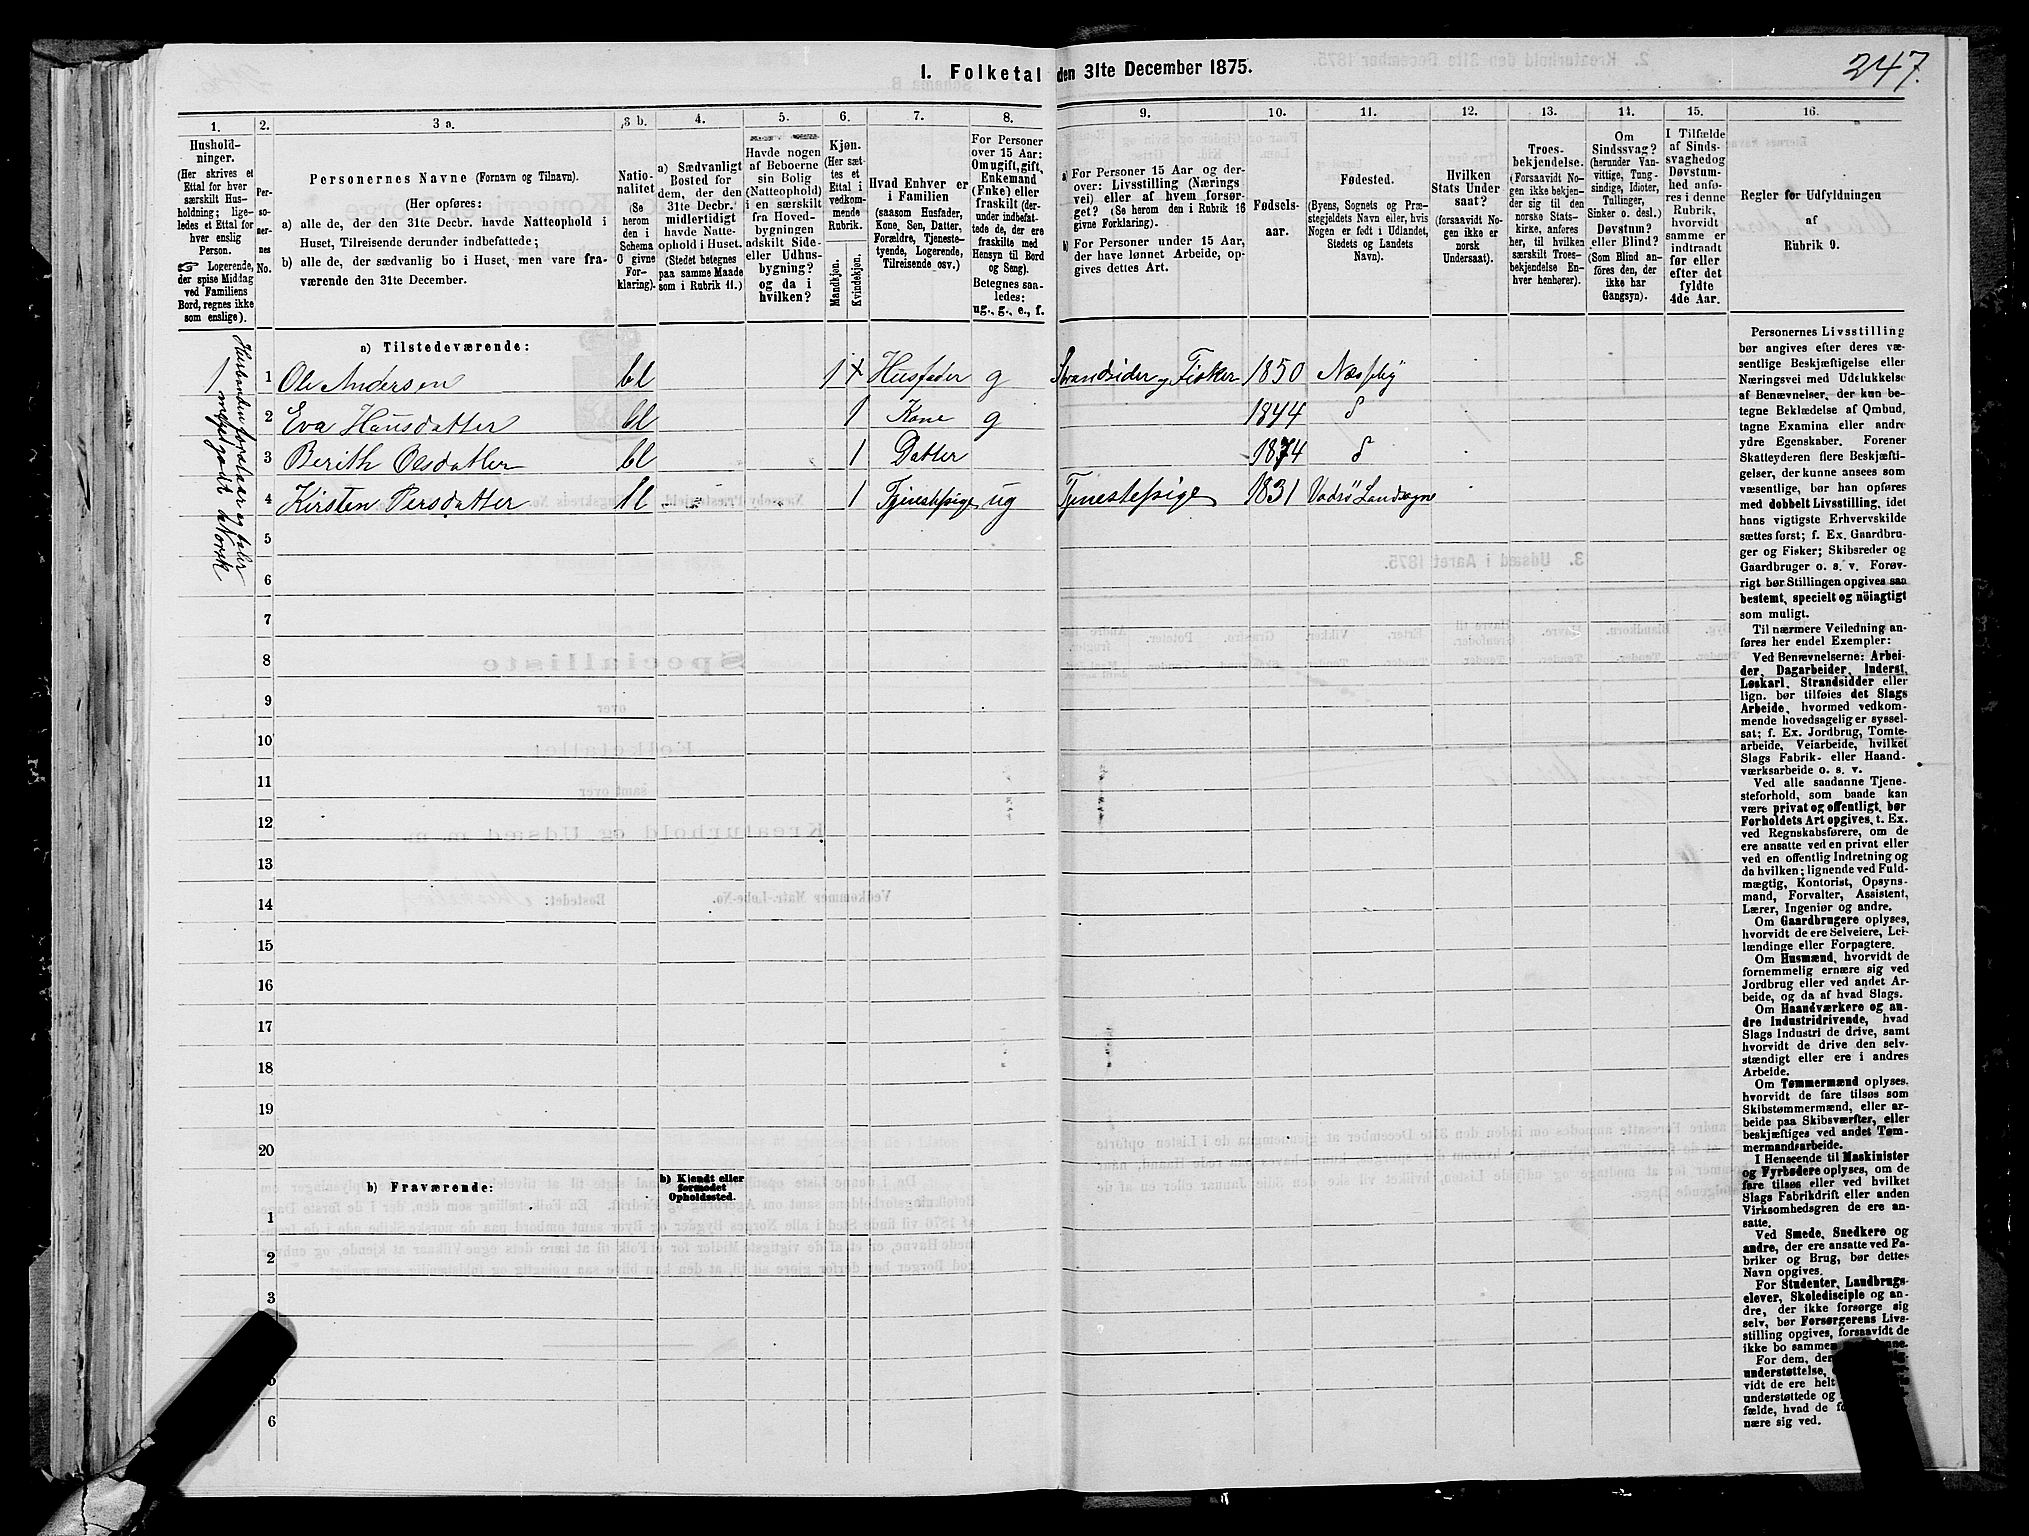 247.
1. Folketal den 31te December 1875.
1.
2.
3 a.
3 b.
4.
5.
6.
7.
8.
9.
10.
11.
12.
13.
14.
15.
16.
Hushold-
ninger.
(Her skrives et
Ettal for hver
særskilt Hus-
holdning; lige-
ledes et Ettal for
hver enslig
Person.
Logerende,
der spise Middag
ved Familiens
Bord, regnes ikke
som enslige).
Per-
so-
ner-
nes
No.
Personernes Navne (Fornavn og Tilnavn).
(Her opføres:
a) alle de, der den 31te Decbr. havde Natteophold i
Huset, Tilreisende derunder indbefattede;
b) alle de, der sædvanlig bo i Huset, men vare fra-
værende den 31te December.
Natio-
nalitet
(Se
herom
den i
Schema
C givne
For-
klaring).
a) Sædvanligt
Bosted for
dem, der den
31te Decbr.
midlertidigt
havde Natte-
ophold i Huset.
(Stedet betegnes
paa samme Maade
som i Rubrik 11.)
Havde nogen
af Beboerne
sin Bolig
(Natteophold)
i en særskilt
fra Hoved-
bygningen
adskilt Side-
eller Udhus-
bygning?
og da i
hvilken?
Kjøn.
(Her sæt-
tes et
Ettal i
vedkom-
mende
Rubrik.
Mandkjøn.
Kvindekjøn.
Hvad Enhver er
i Familien
(saasom Husfader,
Kone, Søn, Datter,
Forældre, Tjeneste-
tyende, Logerende,
Tilreisende osv.)
For Personer
over 15 Aar:
Om ugift, gift,
Enkemand
(Enke) eller
fraskilt (der-
under indbefat-
tede de, der ere
fraskilte med
Hensyn til Bord
og Seng).
Betegnes saa-
ledes:
ug., g., e., f.
a) For Personer 15 Aar og der-
over: Livsstilling (Nærings
vei) eller af hvem forsør-
get? (Se herom den i Rubrik 16
givne Forklaring).
b) For Personer under 15 Aar,
der have lønnet Arbeide, op-
gives dettes Art.
Fødsels-
aar.
Fødested.
(Byens, Sognets og Præ-
stegjeldets Navn eller, hvis
Nogen er født i Udlandet,
Stedets og Landets
Navn).
Hvilken
Stats Under
saat?
(forsaavidt No-
gen ikke er
norsk
Undersaat).
Troes-
bekjendelse.
(Forsaavidt No-
gen ikke bekjen-
der sig til den
norske Stats-
kirke, anføres
her, til hvilken
særskilt Troes-
bekjendelse En-
hver henhører).
Om
Sindssvag?
(herunder Van-
vittige, Tung-
sindige, Idioter,
Tullinger,
Sinker o. desl.)
Døvstum?
eller Blind?
(Som Blind an-
føres den, der
ikke har
Gangsyn).
I Tilfælde
af Sindsс-
svaghedog
Døvstum-
hed anfø-
res i denne
Rubrik,
hvorvidt
samme er
indtraadt
før eller
efter det
fyldte
4de Aar.
Regler for Udfyldningen
af
Rubrik 9.
a) Tilstedeværende:
Husbanden forstaar og taler
meget godt Norsk
1 1 Ole Andersen bl 1 Husfader g Strandsider og Fisker 1850 Næsseby
2 Eva Hansdatter bl 1 Kone g 1844 d
3 Berith Olsdatter bl 1 Datter 1874 d
4 Kirsten Persdatter bl 1 Tjenestepige ug Tjenestepige 1831 Vadsø Landsogn
5
6
7
8
9
10
11
12
13
14
15
16
17
18
19
20
b) Fraværende:
b) Kjendt eller
formodet
Opholdssted.
1
2
3
6
Personernes Livsstilling
bør angives efter deres væ-
sentlige Beskjæftigelse eller
Næringsvei med Udelukkelse
af Benævnelser, der kun be-
tegne Beklædelse af Ombud,
tagne Examina eller andre
ydre Egenskaber. Forener
Skatteyderen flere Beskjæfti-
gelser, der kunne ansees som
væsentlige, bør han opføres
med dobbelt Livsstilling, idet
hans vigtigste Erhvervskilde
sættes først; f. Ex. Gaardbru-
ger og Fisker; Skibsreder og
Gaardbruger o. s. v. Forøv-
rigt bør Stillingen opgives saa
bestemt, specielt og nöiagtigt
som muligt.
Til nærmere Veiledning an-
føres her endel Exempler:
Ved Benævnelserne: Arbei-
der, Dagarbeider, Inderst,
Løskarl, Strandsidder eller
lign. bør tilføies det Slags
Arbeide, hvormed vedkom-
mende hovedsagelig er syssel-
sat; f. Ex. Jordbrug, Tomte-
arbeide, Veiarbeide, hvilket
Slags Fabrik- eller Haand-
værksarbeide o. s. v.
Ved alle saadanne Tjene-
steforhold, som baade kan
være privat og offentligt, bør
Forholdets Art opgives, t. Ex.
ved Regnskabsførere, om de
ere ansatte ved en privat eller
ved en offentlig Indretning og
da hvilken; lignende ved Fuld-
mægtig, Kontorist, Opsyns-
mand, Forvalter, Assistent,
Lærer, Ingeniør og andre.
Om Gaardbrugere oplyses,
hvorvidt de ere Selveiere, Lei-
lændinge eller Forpagtere.
Om Husmænd, hvorvidt de
fornemmelig ernære sig ved
Jordbrug eller ved andet Ar-
beide, og da af hvad Slags.
Om Haandværkere og an-
dre Industridrivende, hvad
Slags Industri de drive, samt
hvorvidt de drive den selv-
stændigt eller ere i andres
Arbeide.
Om Tømmermænd oplyses,
hvorvidt de fare tilsøs som
Skibstømmermænd, eller ar-
beide paa Skibsværfter, eller
beskjæftiges ved andet Tøm-
mermandsarbeide.
I Henseende til Maskinister
og Fyrbødere oplyses, om de
fare tilsøs eller ved hvilket
Slags Fabrikdrift eller anden
Virksomhedsgren de ere an-
satte.
Ved Smede, Snedkere og
andre, der ere ansatte ved Fa-
briker og Brug, bør dettes
Navn opgives.
For Studenter, Landbrugs-
elever, Skoledisciple og an-
dre, der ikke forsørge sig
selv, bør Forsørgerens Livs-
stilling opgives, forsaavidt de
ikke bo sammen
For dem, der
understøttelse,
vidt de ere helt
understøttede og
fælde, hvad de
nære sig ved.